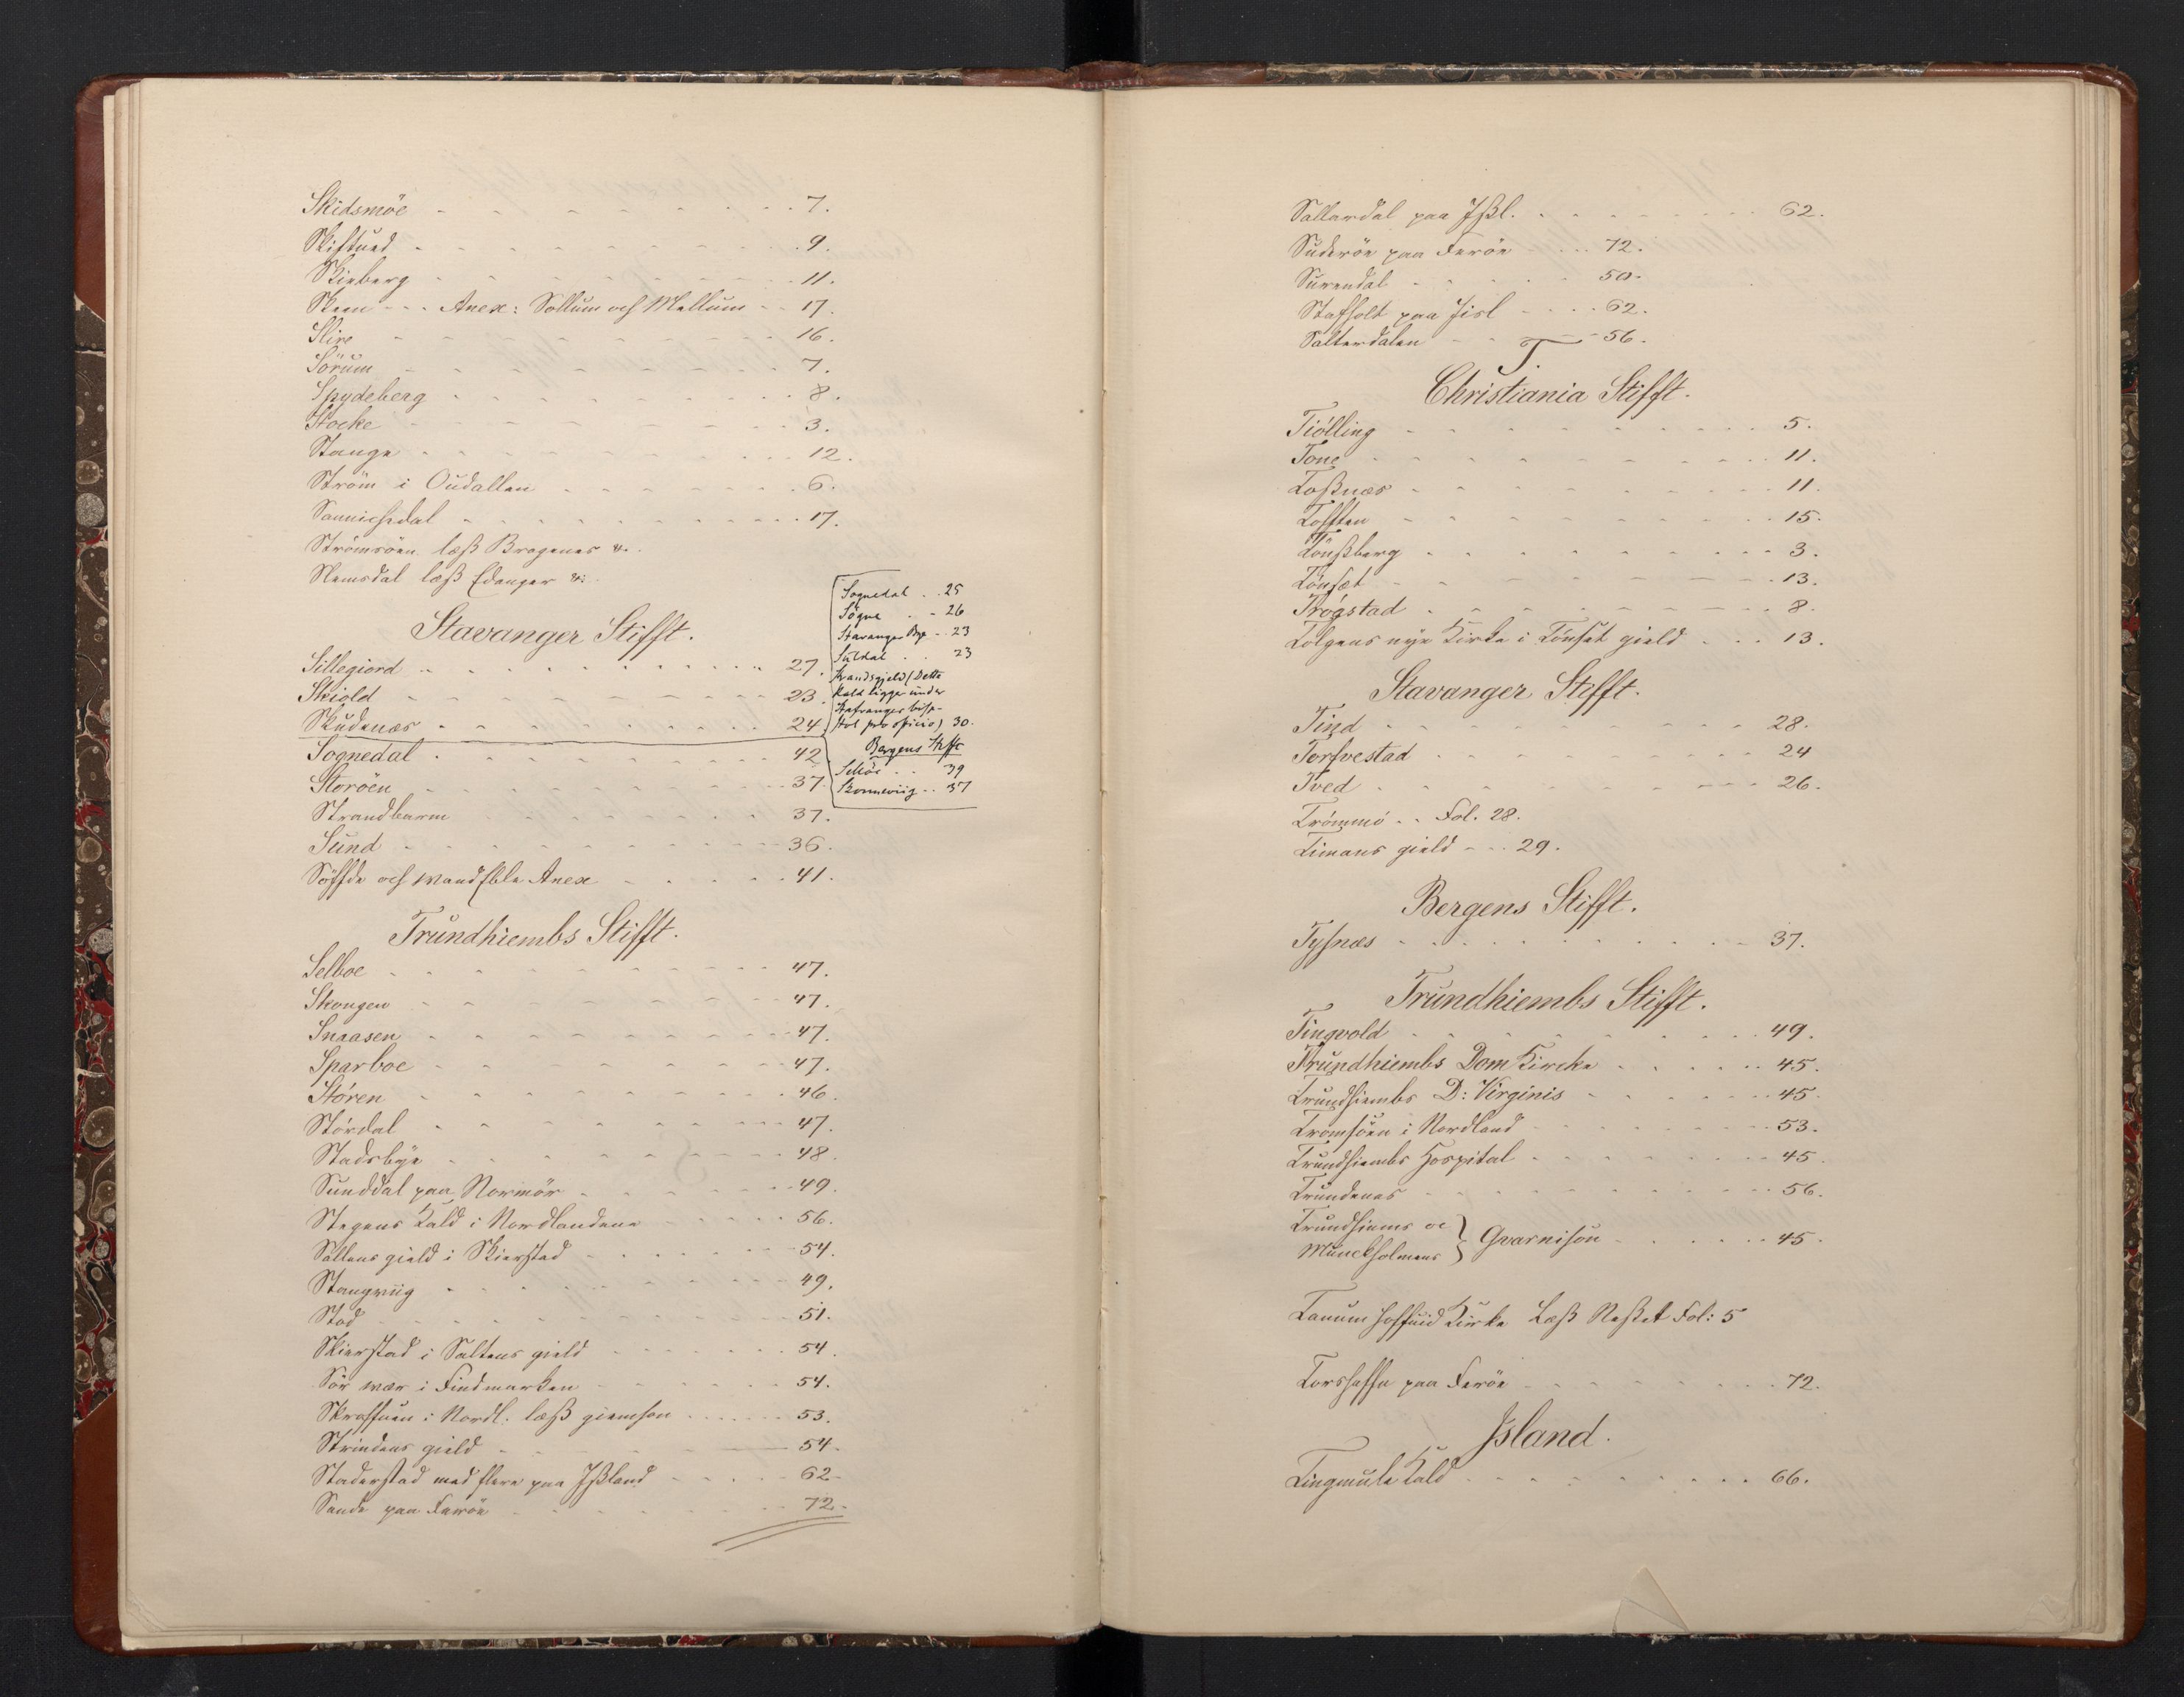 Skidsmöe - - - - 7.
Skiftued - - - - 9.
Skieberg - - - - 11.
Skeen - - - Anex: Sollum och Mellum - - 17.
Slire - - - - 16.
Sörum - - - - 7.
Spydeberg - - - - 8.
Stocke - - - - 3.
Stange - - - - 12.
Ström i Oudallen - - - - 6.
Sannichidal - - - - 17.
Strömsöen læß Bragenes &.
Slemdal læß Edanger &:
Stavanger Stifft.
Sillegiord - - - - 27.
Skiold - - - - 23.
Skudenæs - - - - 24
Sognedal - - - - 42
Storöen - - - - 37.
Strandbarm - - - - 37.
Sund - - - - 36.
Söffde och Anex - - - - 41.
Sognedal . . 25
Sögne . - 26
Stavanger Bye - 23
Suldal . . 23
Strandsgjeld (Dette
Kald ligger under
Stafvanger bispe-
stol pro officio) 30.
Bergens Stift
Selöe . . 39
Skonneviig . . 37
Trundhiembs Stifft.
Selboe - - - - 47.
Skongen - - - - 47.
Snaasen - - - - 47.
Sparboe - - - - 47.
Stören - - - - 46.
Stördal - - - - 47.
Stadsbye - - - - 48.
Sunddal paa Normör - - - - 49.
Stegens Kald i Nordlandene - - - - 56.
Saltens gield i Skierstad - - - - 54.
Stangviig - - - - 49.
Stod - - - - 51.
Skierstad i Saltens gield - - - - 54.
Sör wær i Findmarken - - - - 54.
Skroffuen i Nordl. læß giemsøn - - - - 53.
Strindens gield - - - - 54.
Staderstad med flere paa Ißland - - - - 62.
Sande paa Feröe - - - - 72.
Sallardal paa Ißl. - - - - 62.
Suderöe paa Feröe - - - - 72.
Surendal - - - - 50.
Stafholt paa Iisl - - - - 62.
Salterdalen - - - - 56.
T.
Christiania Stifft.
Tiölling - - - - 5.
Tone - - - - 11.
Toßnæs - - - - 11.
Tofften - - - - 15.
Tönßberg - - - - 3.
Tönset - - - - 13.
Trögstad - - - - 8.
Tolgens nye Kirke i Tönset gield - - - 13.
Stavanger Stifft.
Tind - - - - 28.
Torfvestad - - - - 24
Tved - - - - 26.
Trömmö - - Fol. 28.
Timans gield - - - 29.
Bergens Stifft.
Tysnæs - - - - 37.
Trundhiembs Stifft.
Tingvold - - - - 49.
Trundhiembs Dom Kircke - - - - 45.
Trundhiembs D: Virginis - - - - 45.
Tromsöen i Nordland - - - - 53.
Trundhiembs Hospital - - - - 45.
Trundenes - - - - 56.
Trundhiems oc
Munckholmens } Gvarnison - - - - 45.
Tanum hoffuid Kirke Læß Neßet Fol: 5
Torshaffn paa Feröe - - - - 72.
Island.
Tingmule Kald - - - - 66.